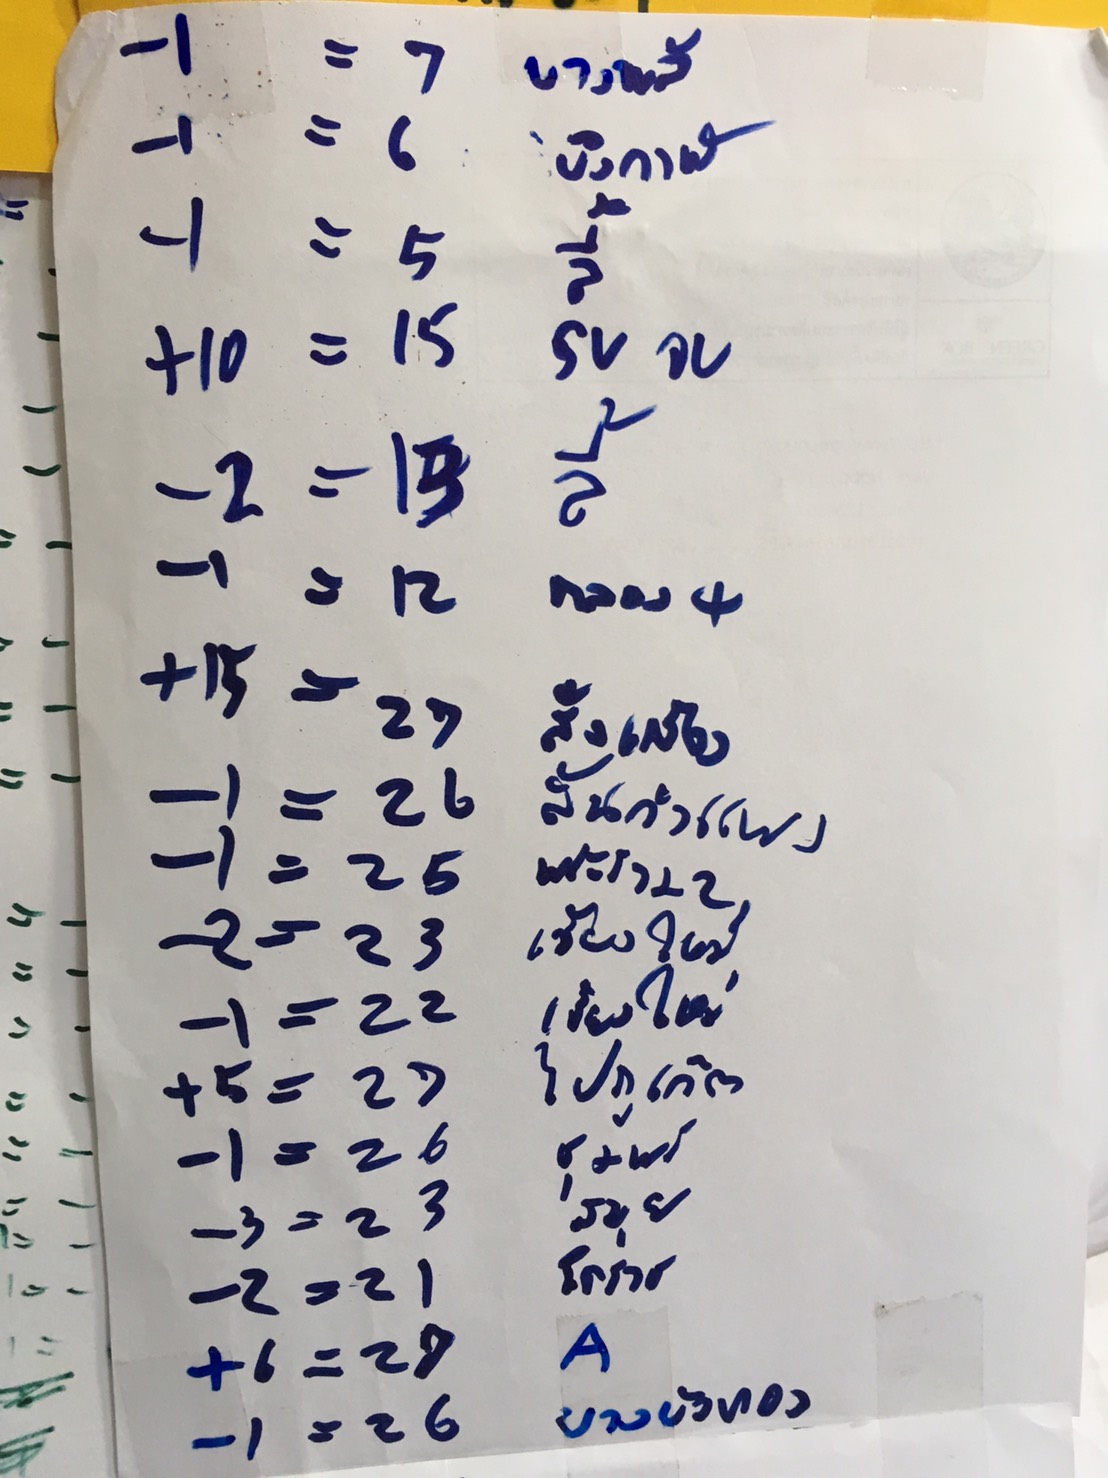 -1 = 7 บางพลี
-1 = 6 บึงกาฬ
-1 = 5 ลี้
+10 = 15 รับ จบ
-2 = 13 ลี้
-1 = 12 คลอง 4
+15 = 27 สั่งเครื่อง
-1 = 26 สันกำแพง
-1 = 25 พระราม 2
-2 = 23 เชียงใหม่
-1 = 22 เชียงใหม่
+5 = 27 ไปภูเก็ต
-1 = 26 ชุมพร
-3 = 23 สมุย
-2 = 21 โคราช
+6 = 27 A
-1 = 26 บางบัวทอง